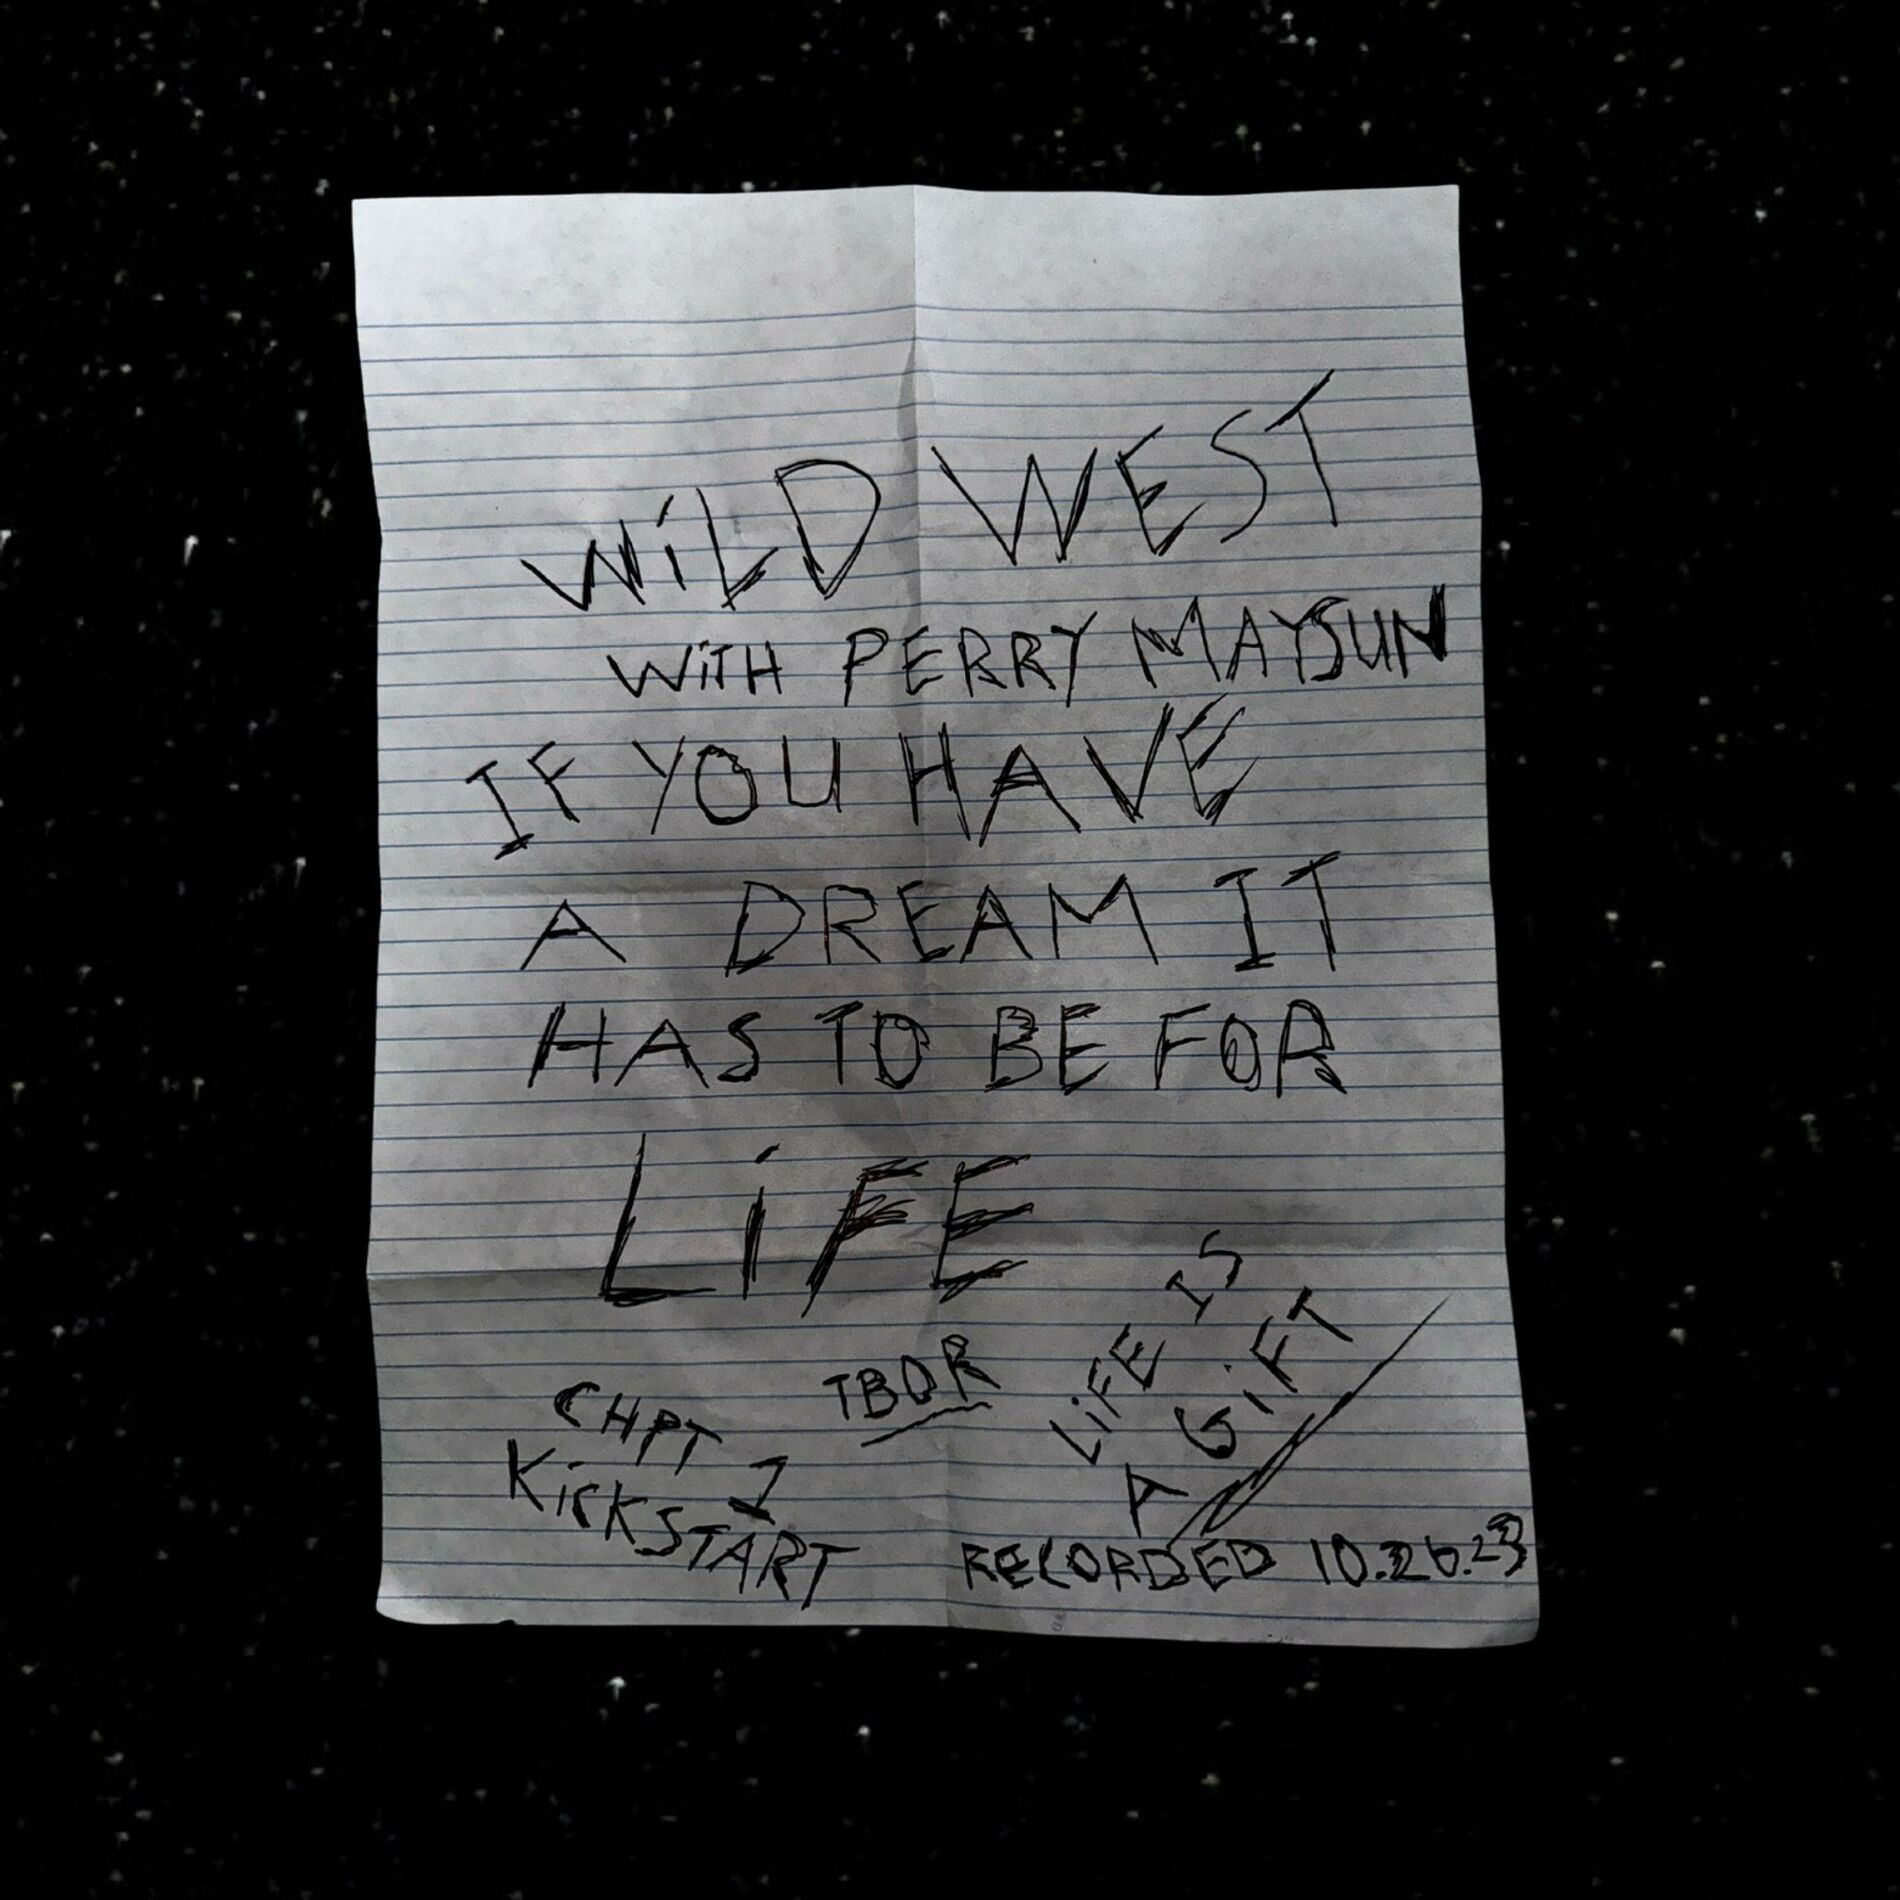 WiLD WEST
WiTH PERRY MAYSUN
IF YOU HAVE
A DREAM IT
HAS TO BE FOR
LiFE
LiFE IS
A GiFT
TBOR
CHPT 1
KicKSTART
RECORDED 10.26.23